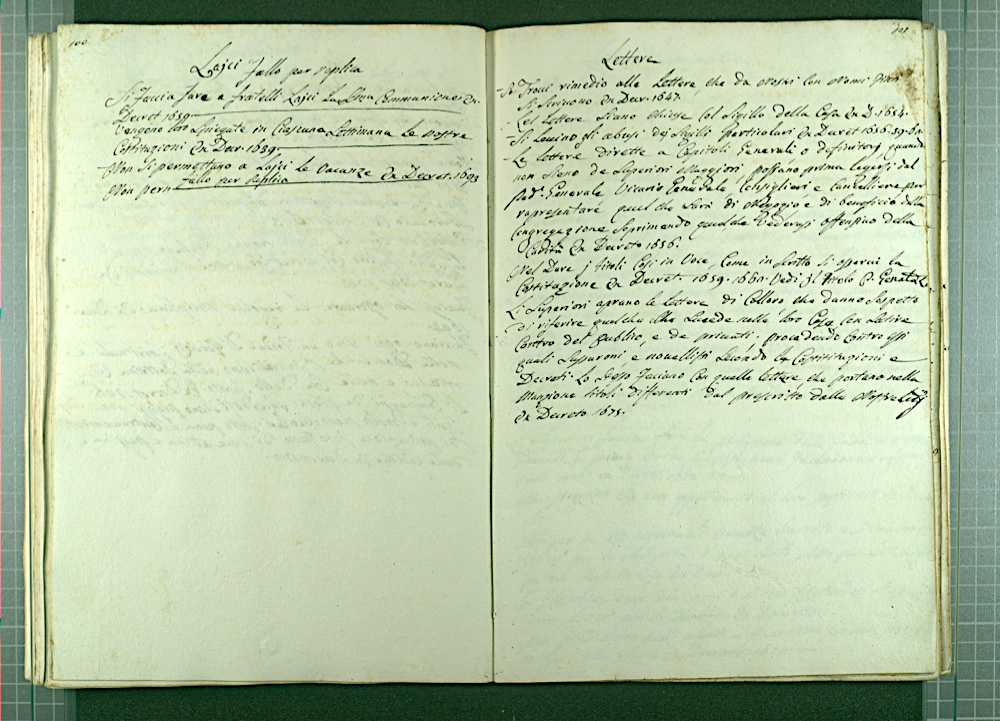 100
Lajci fallo per replica
Si faccia fare a fratelli Lajci la loro Communione Ex
Decret 1639.
Vengono loro spiegate in Ciascuna Settimana le nostre
Costituzioni Ex Decr. 1639.
Non si permettano a Lajci le Vacanze Ex Decret. 1693
Non perm fallo per replica
101
Lettere
Si Trovi rimedio alle lettere che da nostri con nomi finti
si scrivono Ex Decr. 1647.
Le lettere siano chiuse col sigillo della Casa Ex D. 1654.
Si levino gli abusi dej sigilli particolari Ex Decret 1656. 59. 60.
Le lettere dirette a Capitoli Generali o definitorj quando
non sieno de Superiori Maggiori possano prima leggersi dal
Pad. Generale Vicario Generale Consiglieri e Cancelliere per
rapresentare quel che sarà di servigio e di beneficio della
Congregazione soprimendo quel che vederassi offensivo della
Carità Ex Decreto 1656.
Nel Dare j titoli Così in Voce, Come in scritto si osservi la
Costituzione Ex Decret. 1659. 1660. Vedi Jl Titolo P. Generale
Li Superiori aprano le lettere di Coloro che danno sospetto
di riferire quel che succede nelle loro Case con
Contro del publico, e de privati, procedendo contro essi
quali sussurroni e novellisti secondo le Constituzioni e
Decreti. Lo stesso facciano con quelle lettere che portano nella
Mansione titoli differenti dal prescritto delle nostre leggi
Ex Decreto 1675.